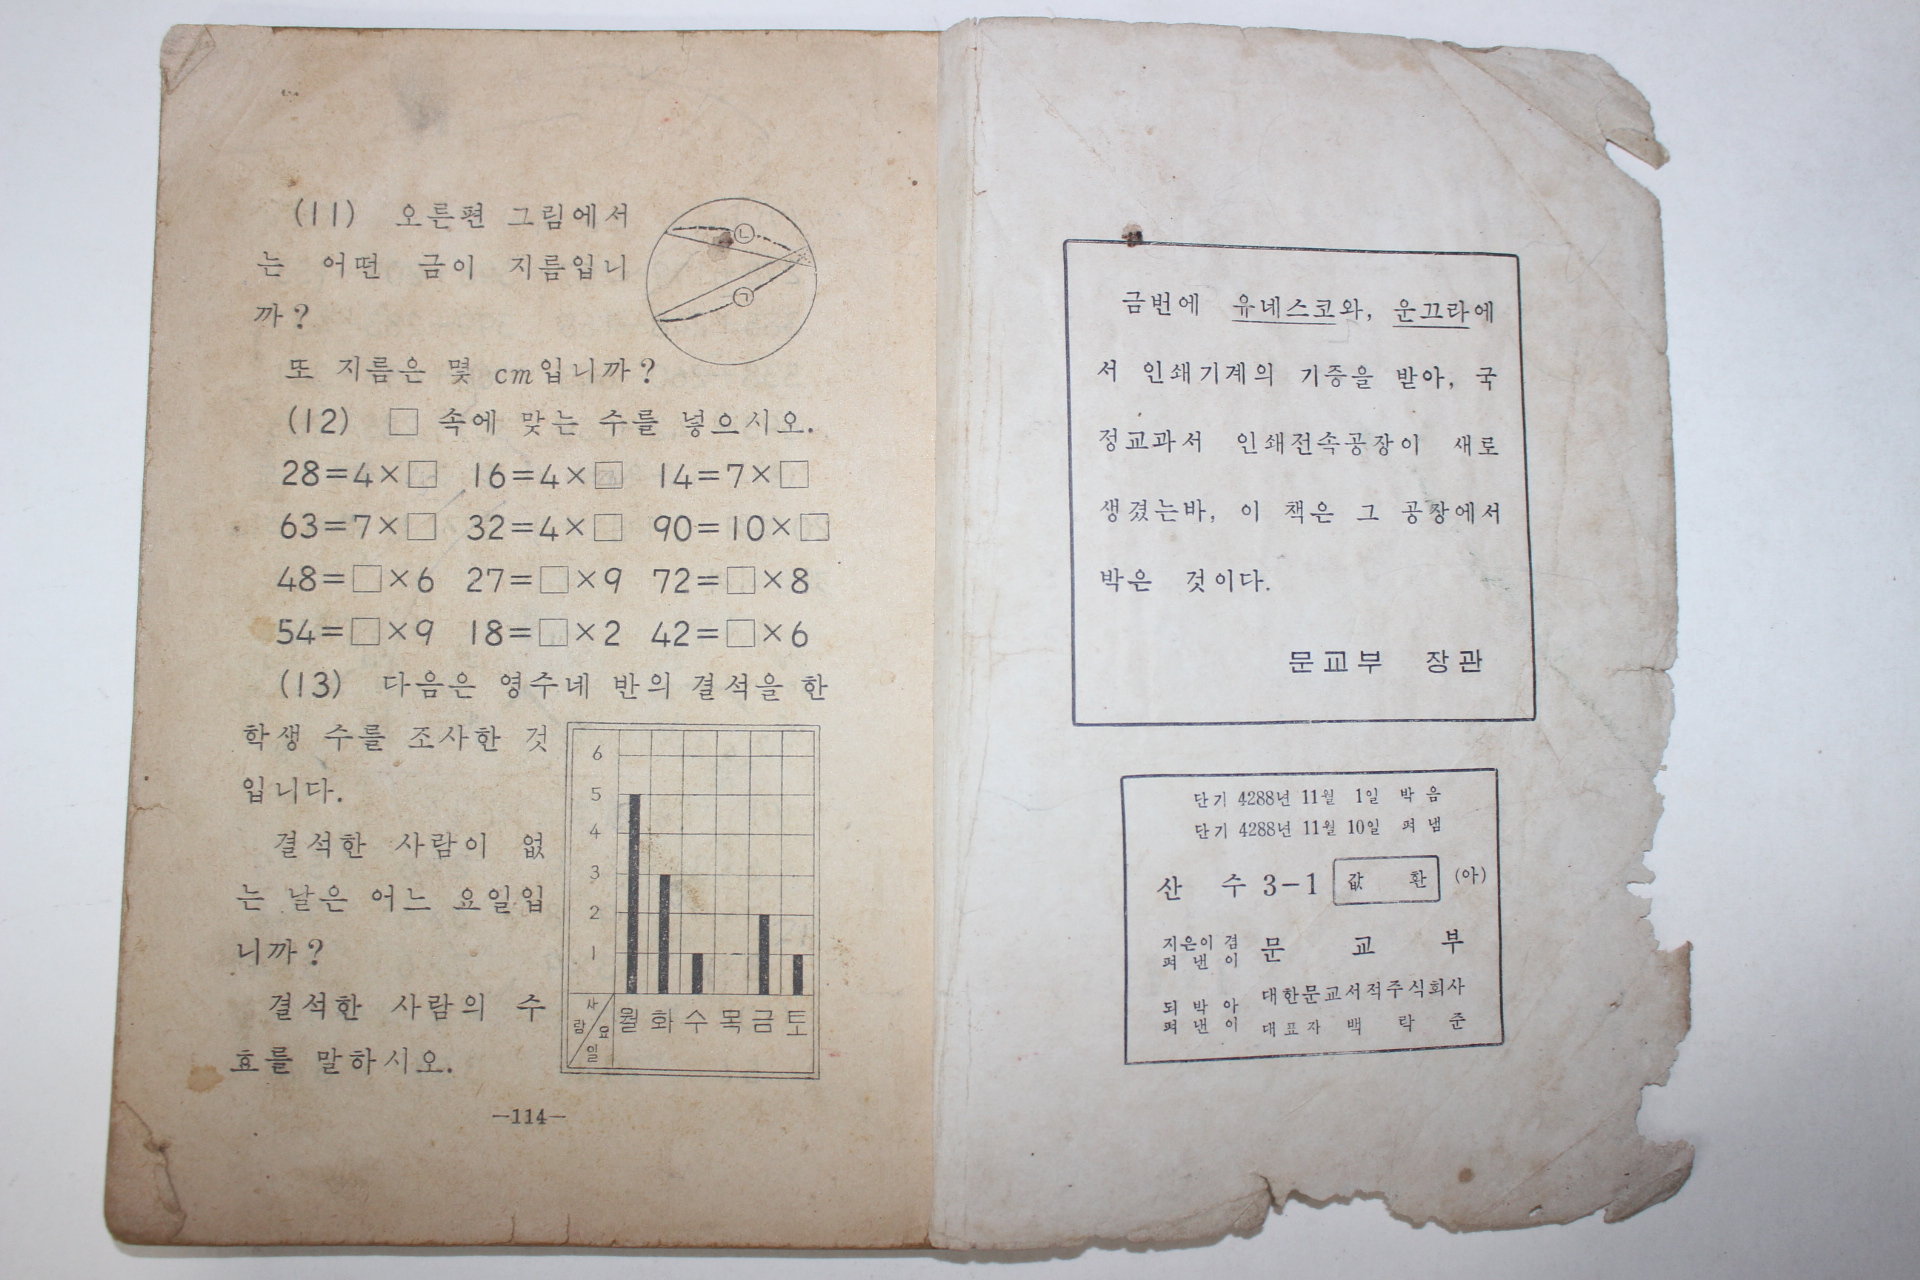 (11) 오른편 그림에서
는 어떤 금이 지름입니
까?
ㄴ
ㄱ
또 지름은 몇 cm입니까?
(12) □ 속에 맞는 수를 넣으시오.
28=4×□ 16=4×□ 14=7×□
63=7×□ 32=4×□ 90=10×□
48=□×6 27=□×9 72=□×8
54=□×9 18=□×2 42=□×6
(13) 다음은 영수네 반의 결석을 한
학생 수를 조사한 것
입니다.
결석한 사람이 없
는 날은 어느 요일입
니까?
결석한 사람의 수
효를 말하시오.
6
5
4
3
2
1
사람
요일
월 화 수 목 금 토
—114—
금번에 유네스코와, 운끄라에
서 인쇄기계의 기증을 받아, 국
정교과서 인쇄전속공장이 새로
생겼는바, 이 책은 그 공장에서
박은 것이다.
문교부 장관
단기 4288년 11월 1일 박음
단기 4288년 11월 10일 펴냄
산 수 3-1 값 환 (아)
지은이 겸
펴 낸 이
문 교 부
되 박 아
펴 낸 이
대한문교서적주식회사
대표자 백 락 준